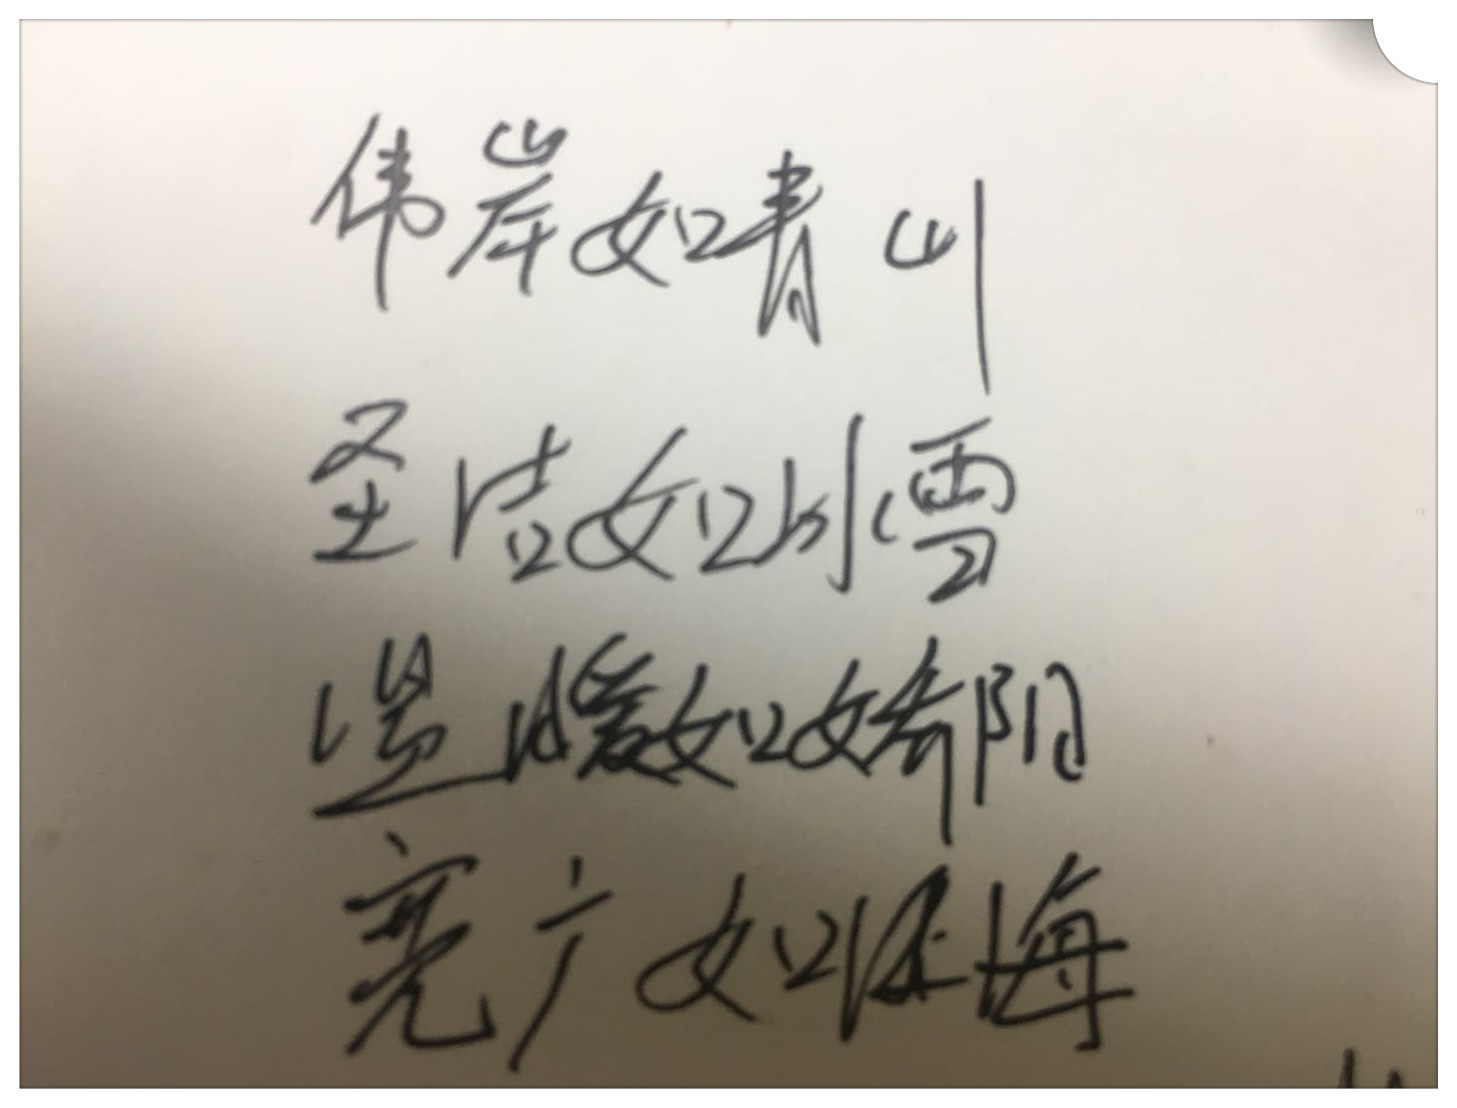 伟岸如青山
圣洁如冰雪
温暖如娇阳
宽广如深海